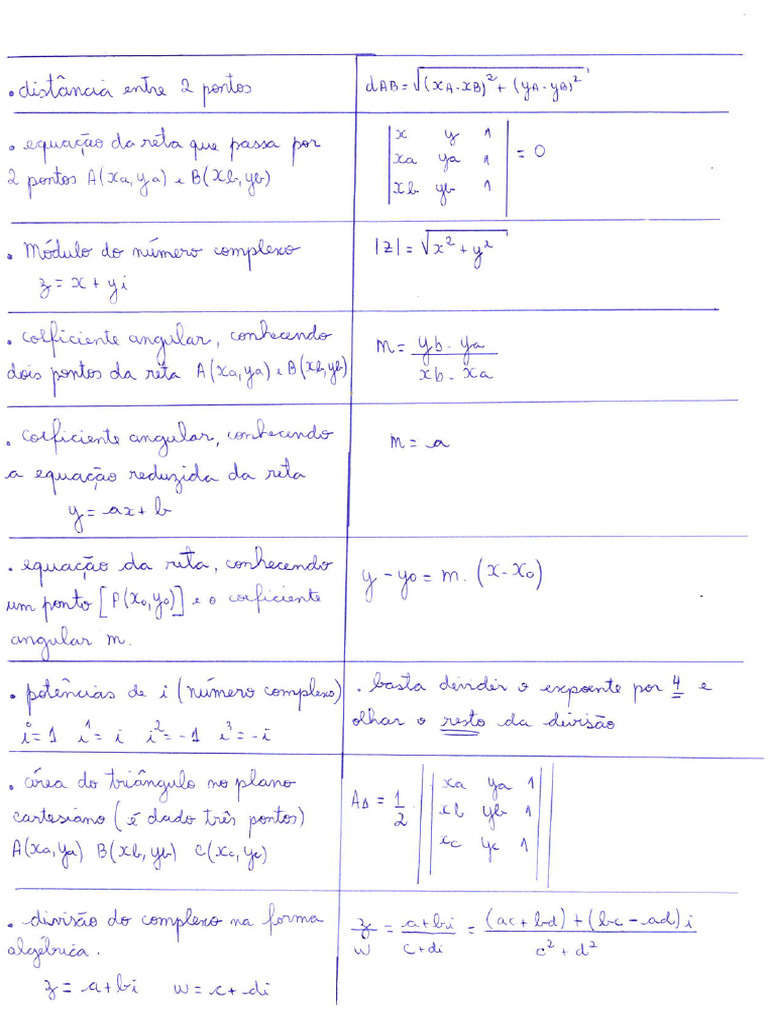 • distância entre 2 pontos
dAB = √(xA - xB)² + (yA - yB)²
• equação da reta que passa por
2 pontos A(xa, ya) e B(xb, yb)
| x y 1 |
| xa ya 1 | = 0
| xb yb 1 |
• Módulo do número complexo
z = x + yi
|z| = √x² + y²
• coeficiente angular, conhecendo
dois pontos da reta A(xa, ya) e B(xb, yb)
m = yb - ya
xb - xa
• coeficiente angular, conhecendo
a equação reduzida da reta
y = ax + b
m = a
• equação da reta, conhecendo
um ponto [P(x₀, y₀)] e o coeficiente
angular m.
y - y₀ = m. (x - x₀)
• potências de i (número complexo)
i⁰ = 1 i¹ = i i² = -1 i³ = -i
• basta dividir o expoente por 4 e
olhar o resto da divisão
• área do triângulo no plano
cartesiano (é dado três pontos)
A(xa, ya) B(xb, yb) C(xc, yc)
AΔ = 1/2 .
|| xa ya 1 ||
|| xb yb 1 ||
|| xc yc 1 ||
• divisão do complexo na forma
algébrica.
z = a + bi w = c + di
z/w = a + bi/c + di = (ac + bd) + (bc - ad) i/c² + d²